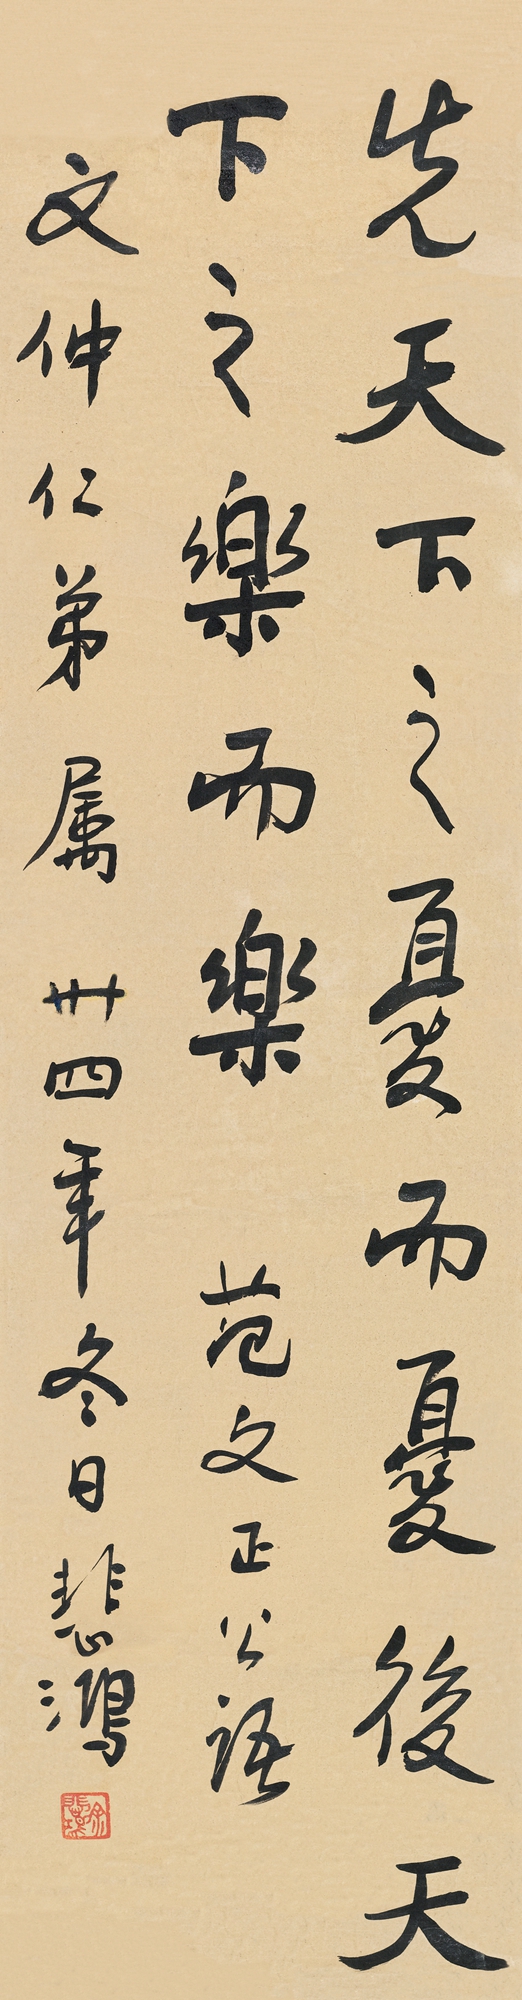 先天下之憂而憂後天
下之樂而樂 范文正公語
文仲仁弟属 卅四年冬日悲鴻